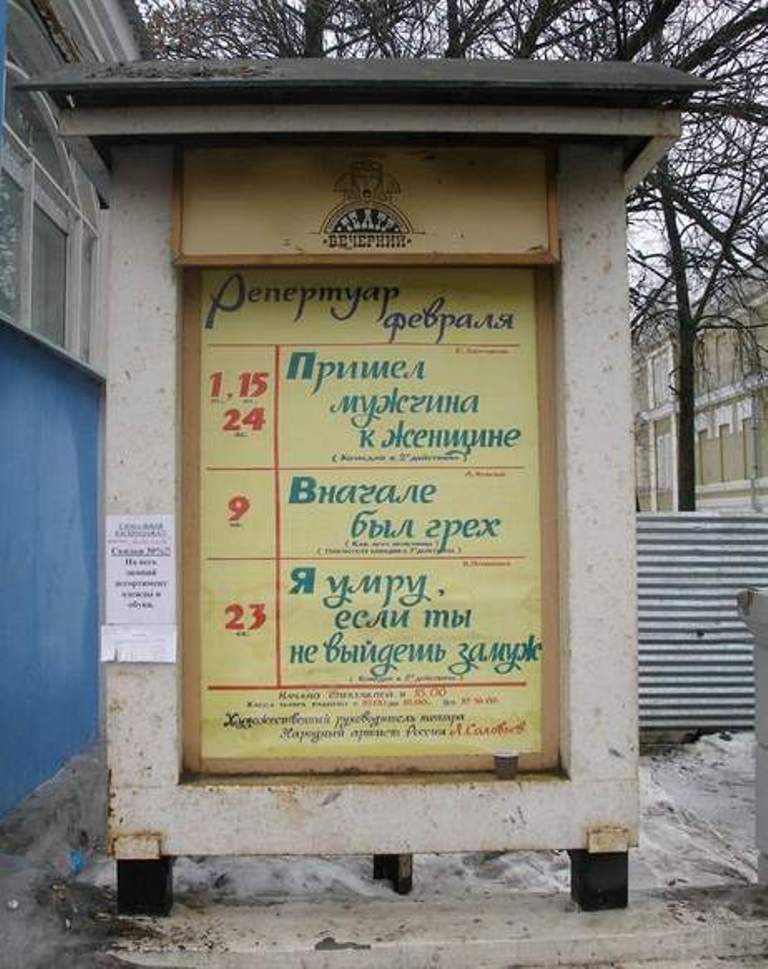 ТЕАТР
ВЕЧЕРНИЙ
Репертуар
февраля
1, 15
24
Пришел
мужчина
к женщине
(Комедия в 2х действиях)
9
Вначале
был грех
23
Я умру,
если ты
не выйдешь замуж
(Комедия в 2х действиях)
Начало спектаклей в 18.00
Художественный руководитель театра
Народный артист России Л.Соловьев
Скидки
На весь
зимний
ассортимент
одежды и
обуви.